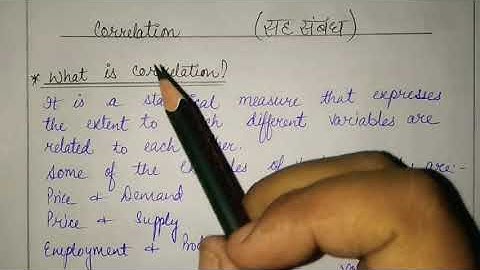 Correlation (सह संबंध)
* What is correlation?
It is a measure that expresses
the extent to different variables are
related to each
Some of the of are:-
Price & Demand
Price & Supply
Employment &